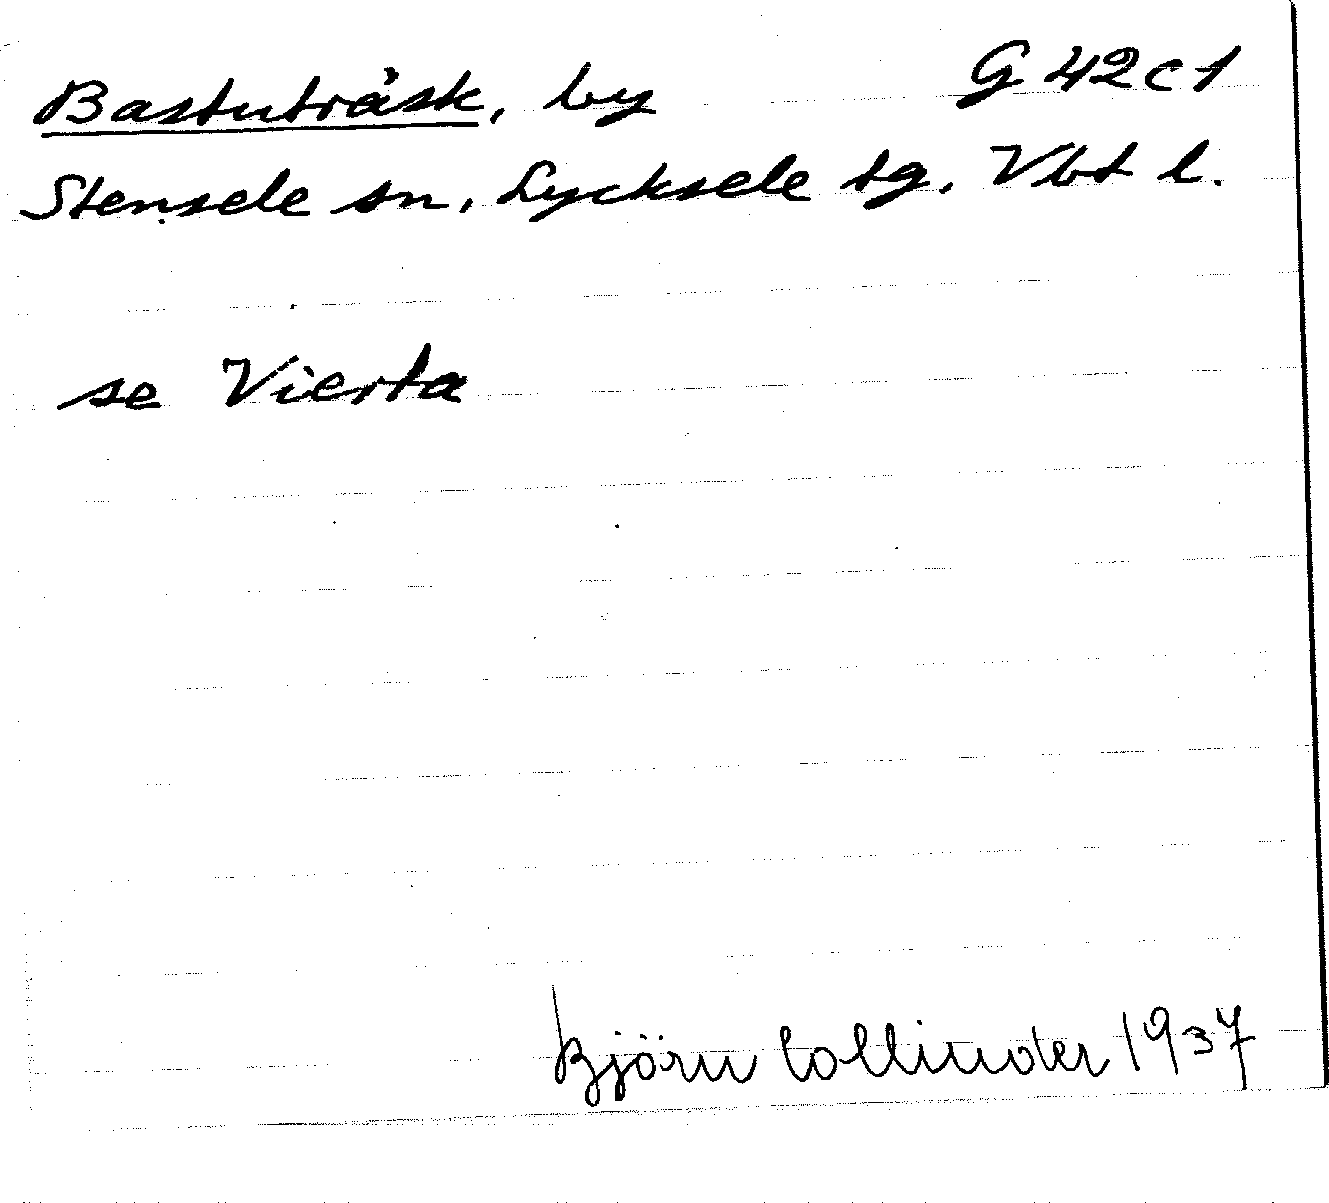 Bastuträsk, by G 42 c 1
Stensele sn, Lycksele tg, Vbt l.
se Vierta
Björn Collinder 1937